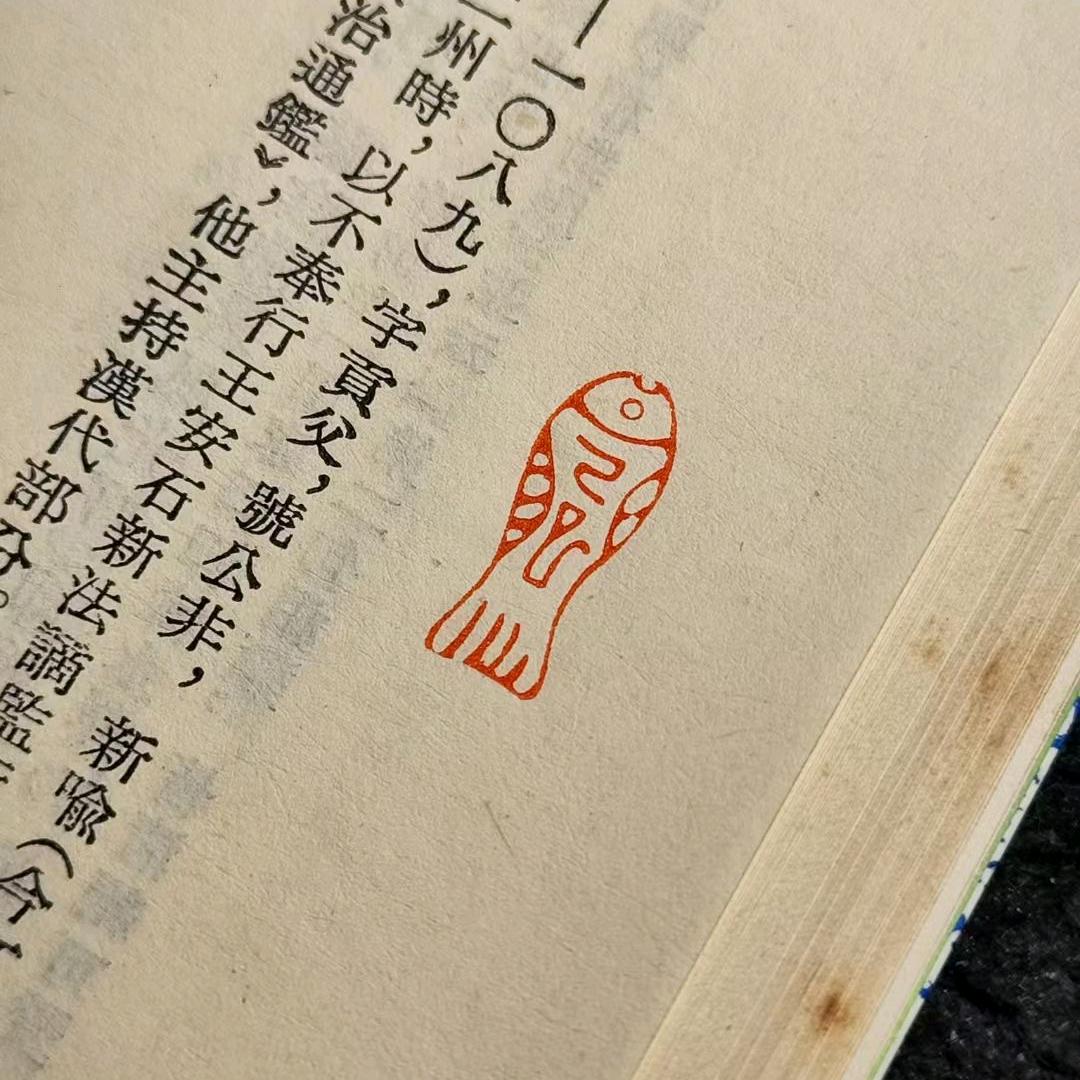 —一〇八九),字貢父,號公非,新喻(今
州時,以不奉行王安石新法謫監
治通鑑》,他主持漢代部分。